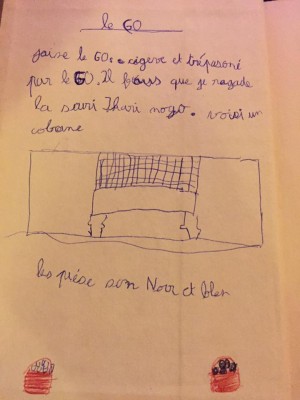 le GO
jaise le GO. cigeve et trépasoné
par le GO. Il fous que je regade
la sari Ikari nogo. voici un
cobane
les piése son Noir et blen